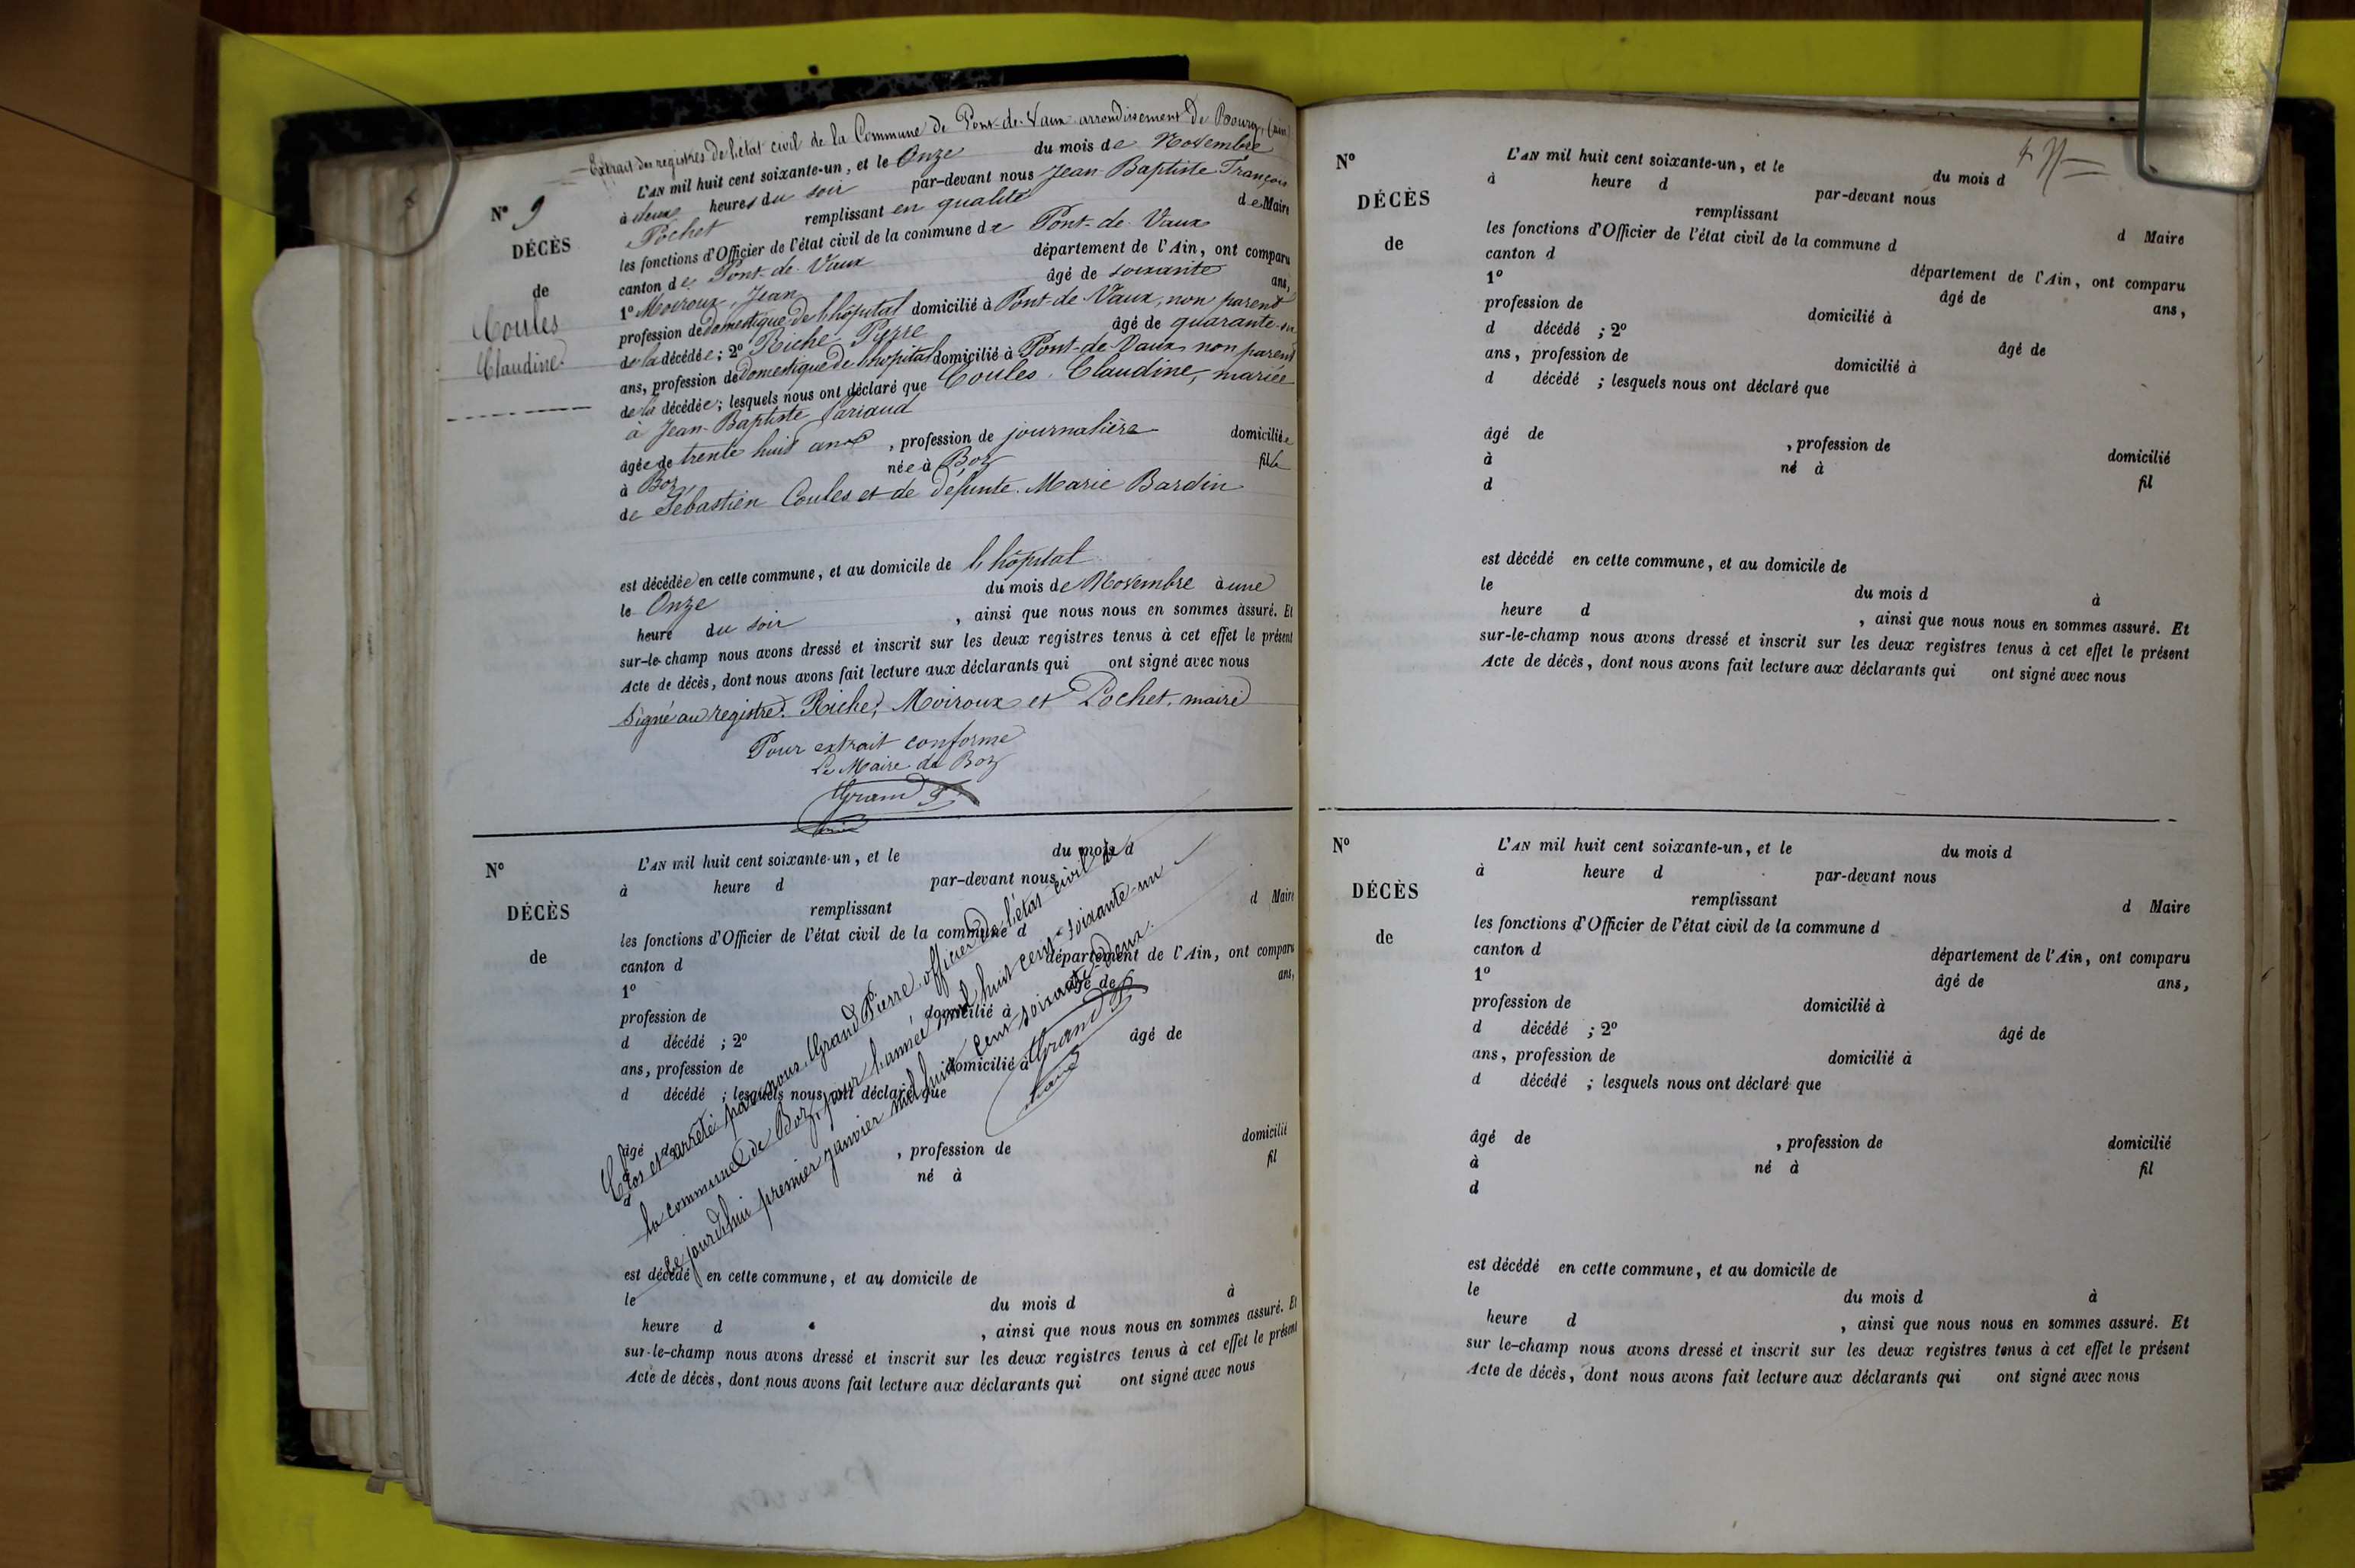 Extrait des registres de l'état civil de la Commune de Pont-de-Vaux arrondissement de Bourg (ain)
N° 9
DÉCÈS
de
Coules
Claudine
L'AN mil huit cent soixante-un, et le Onze du mois de Novembre
à deux heures du soir par-devant nous Jean-Baptiste François
Pochet remplissant en qualité de Maire
les fonctions d'Officier de l'état civil de la commune de Pont-de-Vaux
canton de Pont-de-Vaux département de l'Ain, ont comparu
1° Moiroux, Jean âgé de soixante ans,
profession de domestique de l'hôpital domicilié à Pont-de-Vaux, non parent
de la décédée; 2° Riche, Pierre âgé de quarante-un
ans, profession de domestique de l'hôpital domicilié à Pont-de-Vaux, non parent
de la décédée; lesquels nous ont déclaré que Coules, Claudine, mariée
à Jean-Baptiste Pariaud
âgée de trente huit ans, profession de journalière domiciliée
à Boz née à Boz fille
de Sébastien Coules et de défunte Marie Bardin
est décédée en cette commune, et au domicile de l'hôpital
le Onze du mois de Novembre à une
heure du soir, ainsi que nous nous en sommes assuré. Et
sur-le-champ nous avons dressé et inscrit sur les deux registres tenus à cet effet le présent
Acte de décès, dont nous avons fait lecture aux déclarants qui ont signé avec nous
Signé au registre. Riche, Moiroux et Pochet, maire
Pour extrait conforme
Le Maire de Boz
Grand P
N°
DÉCÈS
de
L'AN mil huit cent soixante-un, et le du mois d
à heure d par-devant nous
remplissant d Maire
les fonctions d'Officier de l'état civil de la commune d
canton d département de l'Ain, ont comparu
1° âgé de ans,
profession de domicilié à
d décédé ; 2° âgé de
ans, profession de domicilié à
d décédé ; lesquels nous ont déclaré que
âgé de , profession de domicilié
à né à fil
d
est décédé en cette commune, et au domicile de
le du mois d à
heure d , ainsi que nous nous en sommes assuré. Et
sur-le-champ nous avons dressé et inscrit sur les deux registres tenus à cet effet le présent
Acte de décès, dont nous avons fait lecture aux déclarants qui ont signé avec nous
Clos et arrêté par nous, Grand Pierre officier de l'état civil de
la commune de Boz, pour l'année mil huit cent soixante-un
Ce jourd'hui premier janvier mil huit cent soixante deux.
Grand P
N°
DÉCÈS
de
L'AN mil huit cent soixante-un, et le du mois d
à heure d par-devant nous
remplissant d Maire
les fonctions d'Officier de l'état civil de la commune d
canton d département de l'Ain, ont comparu
1° âgé de ans,
profession de domicilié à
d décédé ; 2° âgé de
ans, profession de domicilié à
d décédé ; lesquels nous ont déclaré que
âgé de , profession de domicilié
à né à fil
d
est décédé en cette commune, et au domicile de
le du mois d à
heure d , ainsi que nous nous en sommes assuré. Et
sur-le-champ nous avons dressé et inscrit sur les deux registres tenus à cet effet le présent
Acte de décès, dont nous avons fait lecture aux déclarants qui ont signé avec nous
N°
DÉCÈS
de
L'AN mil huit cent soixante-un, et le du mois d
à heure d par-devant nous
remplissant d Maire
les fonctions d'Officier de l'état civil de la commune d
canton d département de l'Ain, ont comparu
1° âgé de ans,
profession de domicilié à
d décédé ; 2° âgé de
ans, profession de domicilié à
d décédé ; lesquels nous ont déclaré que
âgé de , profession de domicilié
à né à fil
d
est décédé en cette commune, et au domicile de
le du mois d à
heure d , ainsi que nous nous en sommes assuré. Et
sur le-champ nous avons dressé et inscrit sur les deux registres tenus à cet effet le présent
Acte de décès, dont nous avons fait lecture aux déclarants qui ont signé avec nous